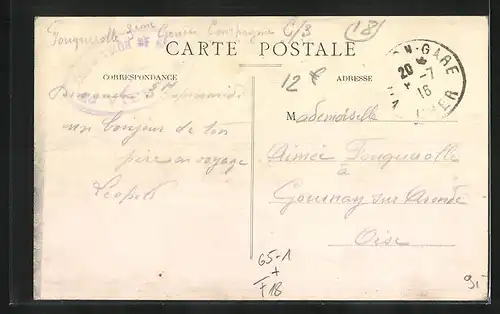 Fouquerolle 3eme Génie Compagnie C/3 (18)
CARTE POSTALE
CORRESPONDANCE
ADRESSE
12
Dimanche 5h
un bonjour de ton
père en voyage
Léopold
Mademoiselle
Aimée Fouquerolle
à
Gournay sur Aronde
Oise
GARE
20
-7
16
CHER
65-1
+
F18